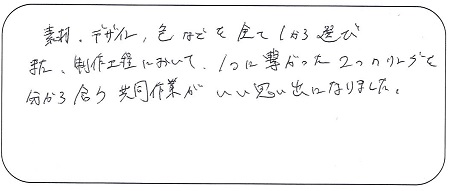 素材、デザイン、色などを全て1から選び
また、制作工程において、1つに繋がった2つのリングを
分かち合う共同作業がいい思い出になりました。